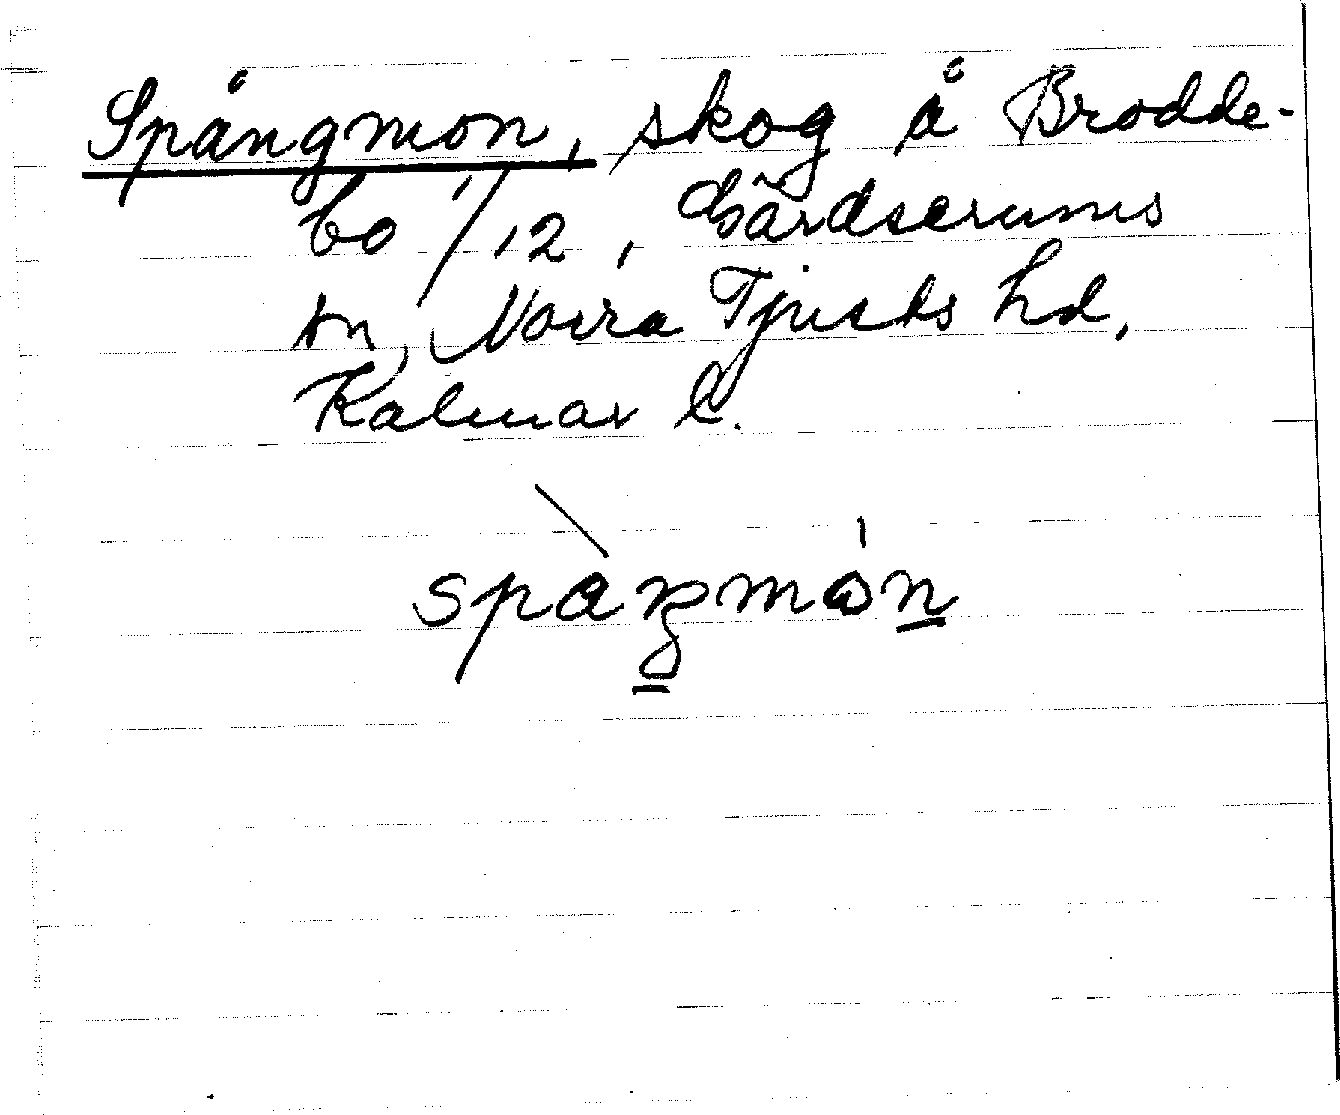 Spångmon, skog å Brodde-
bo 1/12, Gärdserums
sn, Norra Tjusts hd,
Kalmar l.